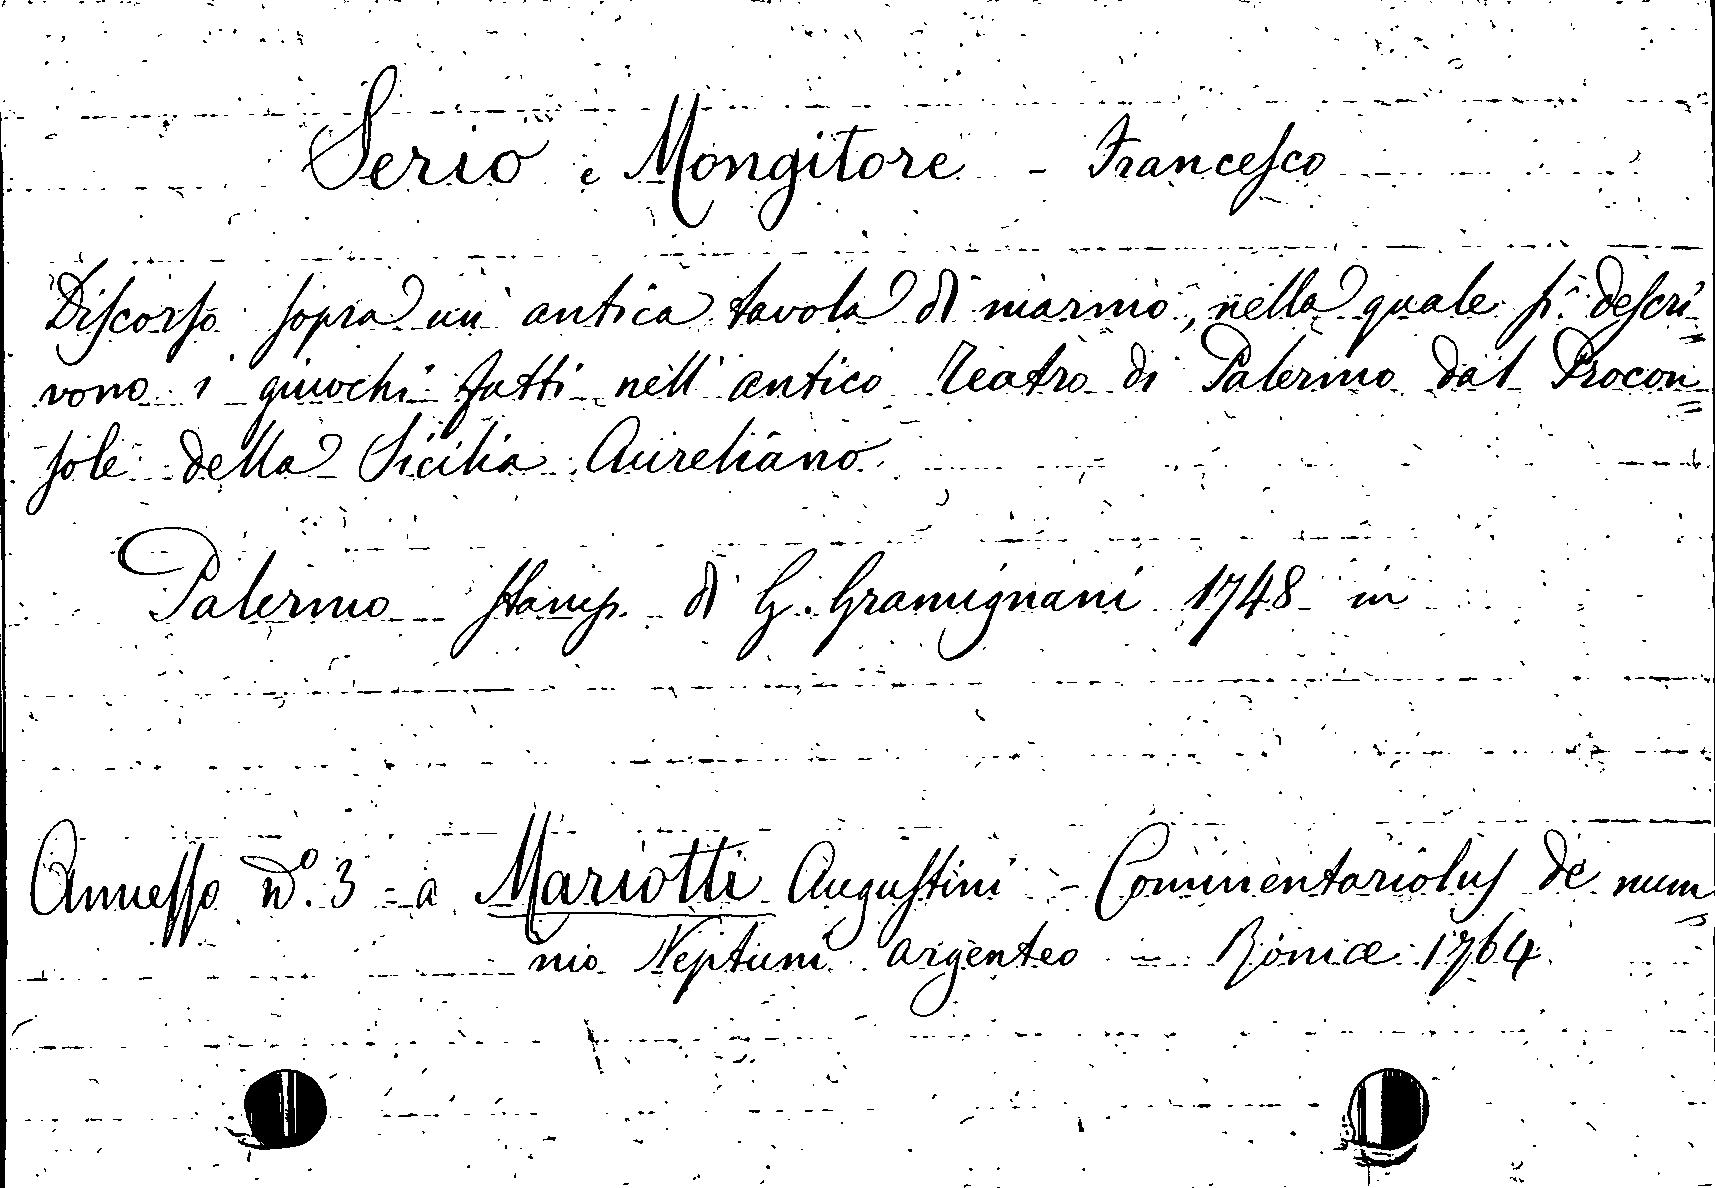 Serio e Mongitore - Francesco
Discorso sopra un' antica tavola di marmo, nella quale si descri=
vono i giuochi fatti nell' antico Teatro di Palermo dal Procon=
sole della Sicilia Aureliano.
Palermo Stamp. di G. Gramignani 1748 in
Annesso N.º 3 = a Mariotti Augustini - Commentariolus de num=
mo Neptuni argenteo = Romæ 1764.